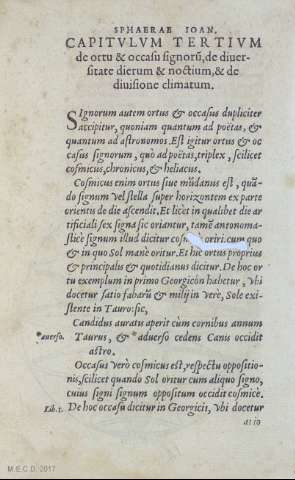 SPHAERAE IOAN.
CAPITVLVM TERTIVM
de ortu & occasu signorũ, de diuer-
sitate dierum & noctium, & de
diuisione climatum.
SIgnorum autem ortus & occasus dupliciter
accipitur, quoniam quantum ad poëtas, &
quantum ad astronomos. Est igitur ortus & oc
casus signorum, quò ad poëtas, triplex, scilicet
cosmicus, chronicus, & heliacus.
Cosmicus enim ortus siue mũdanus est, quã-
do signum vel stella super horizontem ex parte
orientis de die ascendit. Et licèt in qualibet die ar
tificiali sex signa sic oriantur, tamẽ antonoma-
sticè signum illud dicitur oriri, cum quo
& in quo Sol manè oritur. Et hic ortus proprius
& principalis & quotidianus dicitur. De hoc or
tu exemplum in primo Georgicõn habetur, vbi
docetur satio fabarũ & milij in vere, Sole exi-
stente in Tauro: sic,
Candidus auratis aperit cùm cornibus annum
*auerso. Taurus, & *aduerso cedens Canis occidit
astro.
Occasus verò cosmicus est, respectu oppositio-
nis, scilicet quando Sol oritur cum aliquo signo,
cuius signi signum oppositum occidit cosmicè.
Lib. 1. De hoc occasu dicitur in Georgicis, vbi docetur
M.E.C.D. 2017